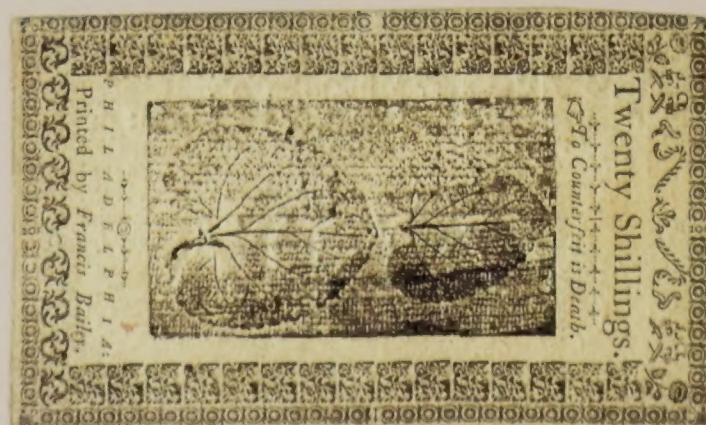 Twenty Shillings.
☞To Counterfeit is Death.
PHILADELPHIA:
Printed by Francis Bailey.